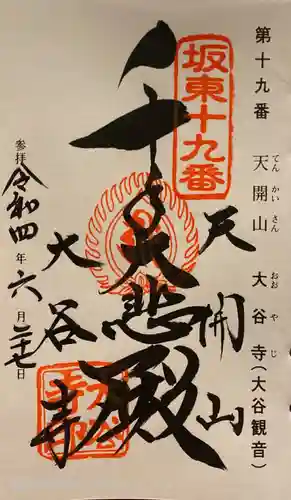 第十九番 天開山 大谷寺(大谷観音)
てんかいさん おおやじ
坂東十九番
天開山
大悲殿
大谷寺
参拝 令和四年六月二十七日